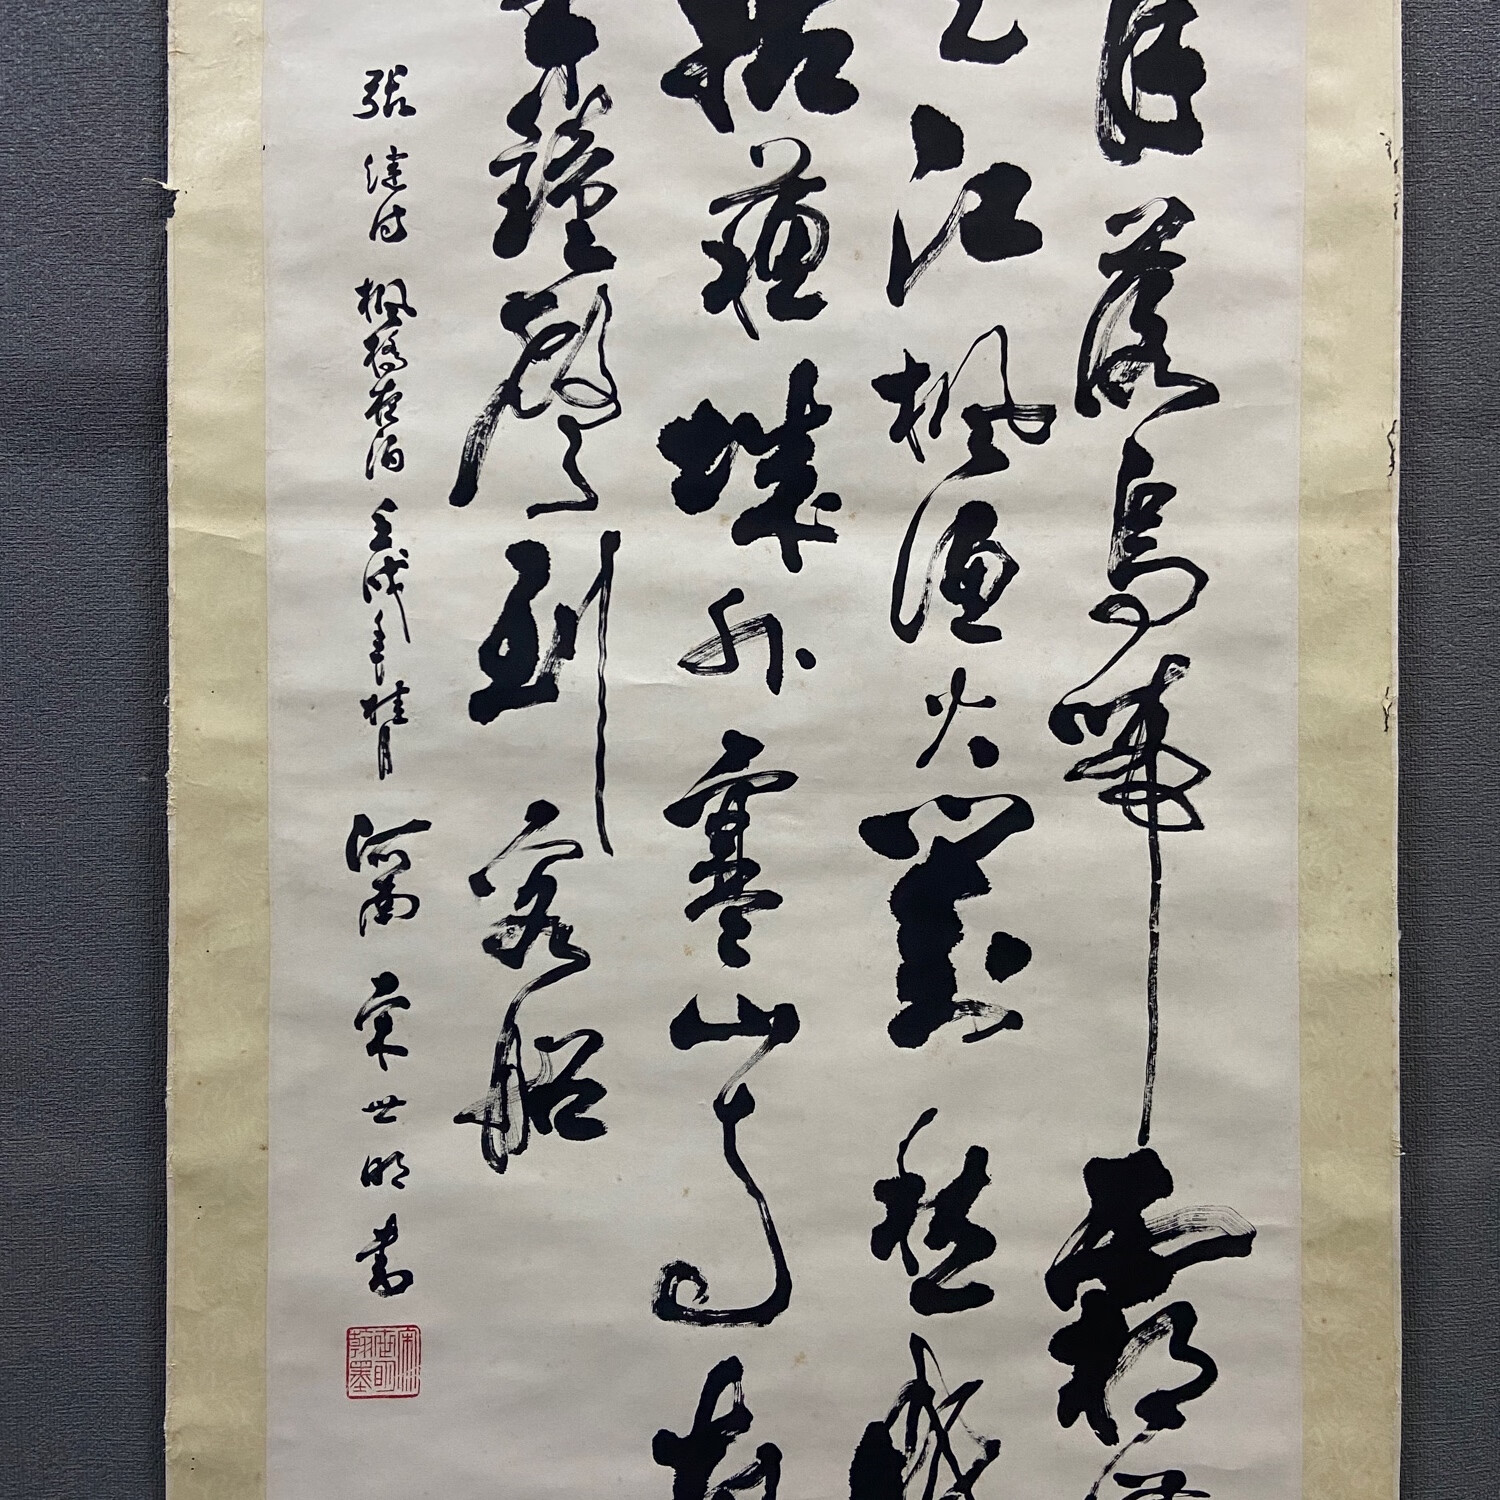 月落烏啼霜滿
天江楓漁火對愁眠
姑蘇城外寒山寺夜
半鐘聲到客船
張繼詩 楓橋夜泊 壬戌年桂月 河南 宋世明書
宋世明翰墨